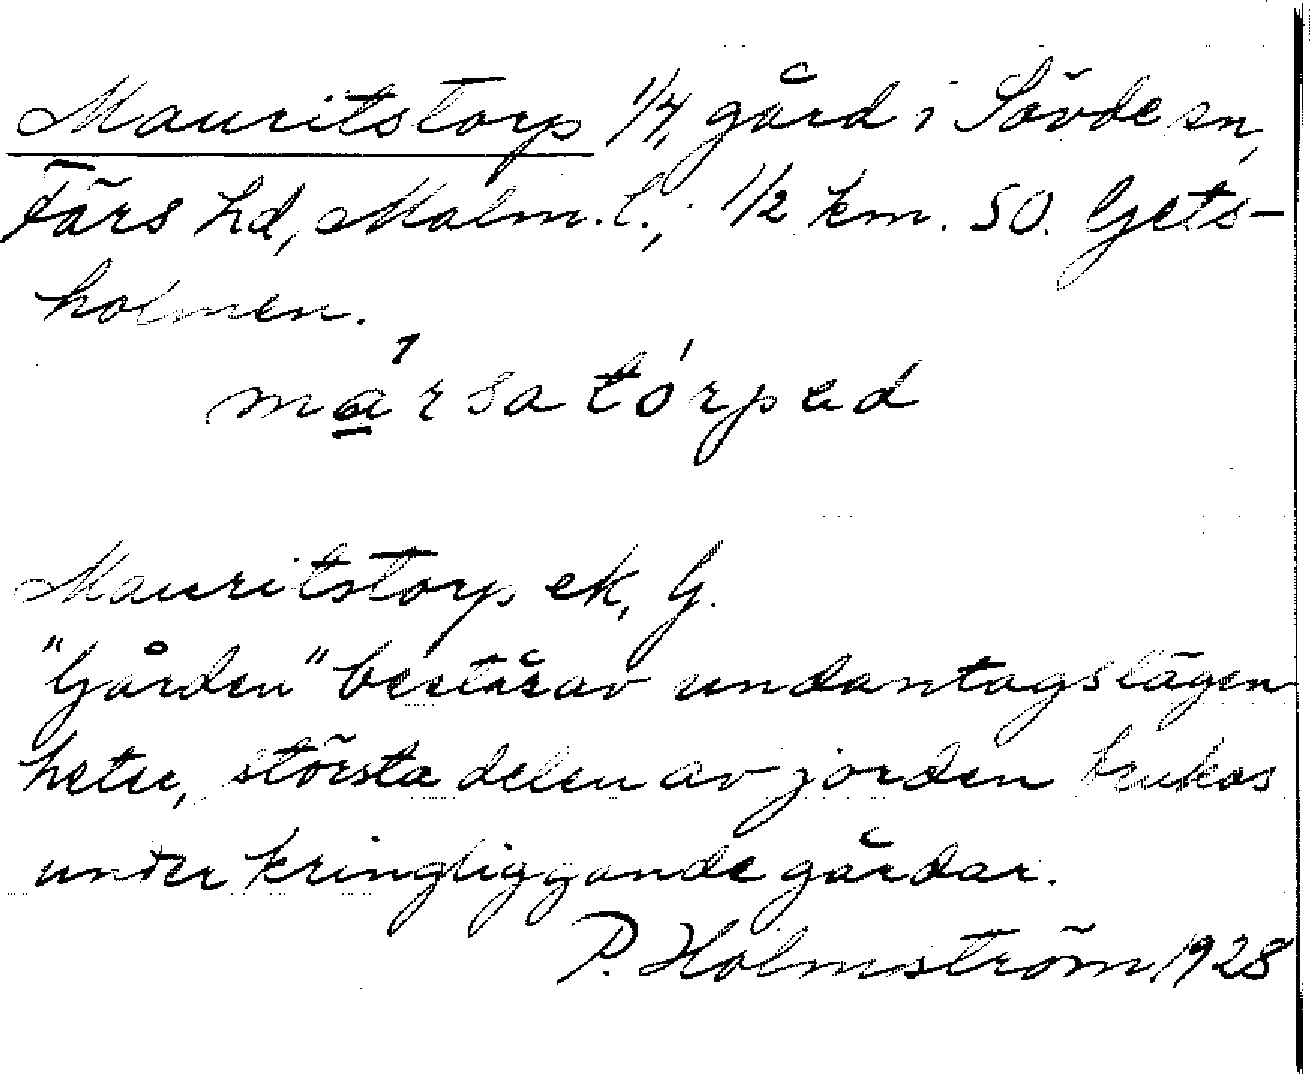 Mauritstorp 1/4, gård i Sövde sn,
Färs hd, Malm. l., 1/2 km. SO. Gets-
holmen.
mársatórped
Mauritstorp ek, G.
"Gården" består av undantagslägen
heter, största delen av jorden brukas
under kringliggande gårdar.
P. Holmström 1928